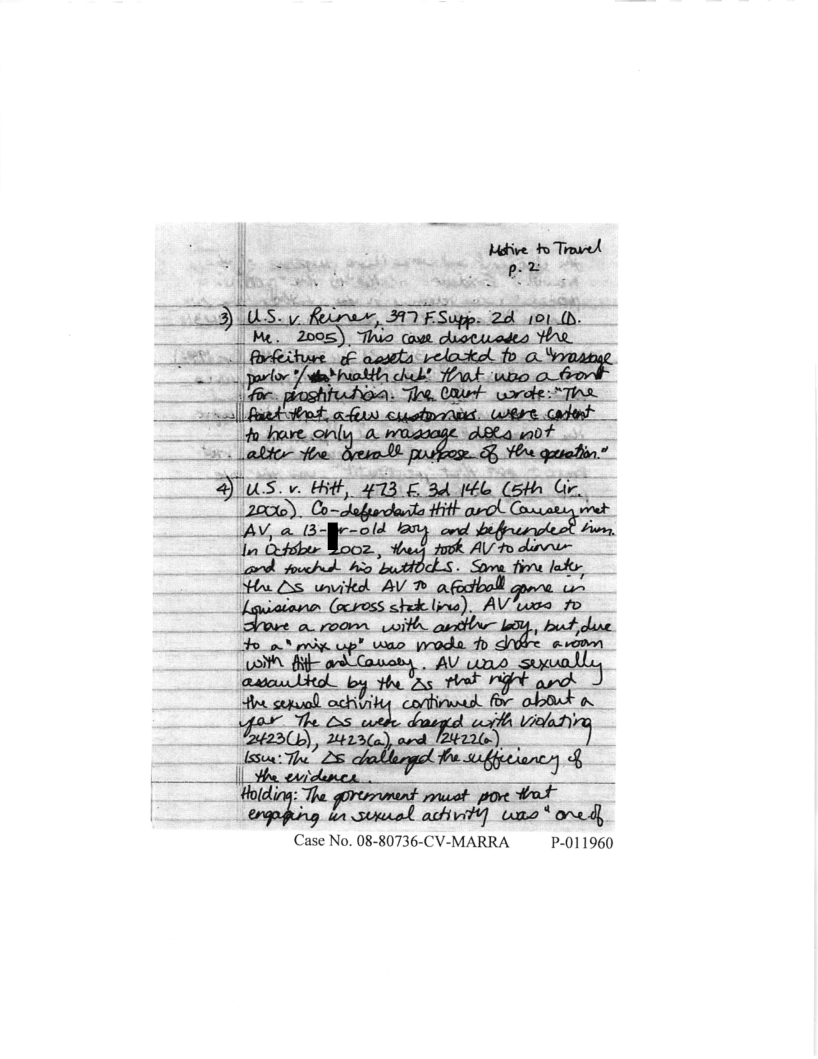 Motive to Travel
p. 2
3) U.S. v. Reiner, 397 F.Supp. 2d 101 (D.
Me. 2005). This case discusses the
forfeiture of assets related to a "massage
parlor"/ "health club" that was a front
for prostitution. The Court wrote: "The
fact that a few customers were content
to have only a massage does not
alter the overall purpose of the operation."
4) U.S. v. Hitt, 473 F. 3d 146 (5th Cir.
2006). Co-defendants Hitt and Causey met
AV, a 13- r-old boy and befriended him.
In October 2002, they took AV to dinner
and touched his buttocks. Some time later,
the Δs invited AV to a football game in
Louisiana (across state lines). AV was to
share a room with another boy, but, due
to a "mix up" was made to share a room
with Hitt and Causey. AV was sexually
assaulted by the Δs that night and
the sexual activity continued for about a
year. The Δs were charged with violating
2423(b), 2423(a), and 2422(b)
Issue: The Δs challenged the sufficiency of
the evidence.
Holding: The government must prove that
engaging in sexual activity was "one of
Case No. 08-80736-CV-MARRA P-011960